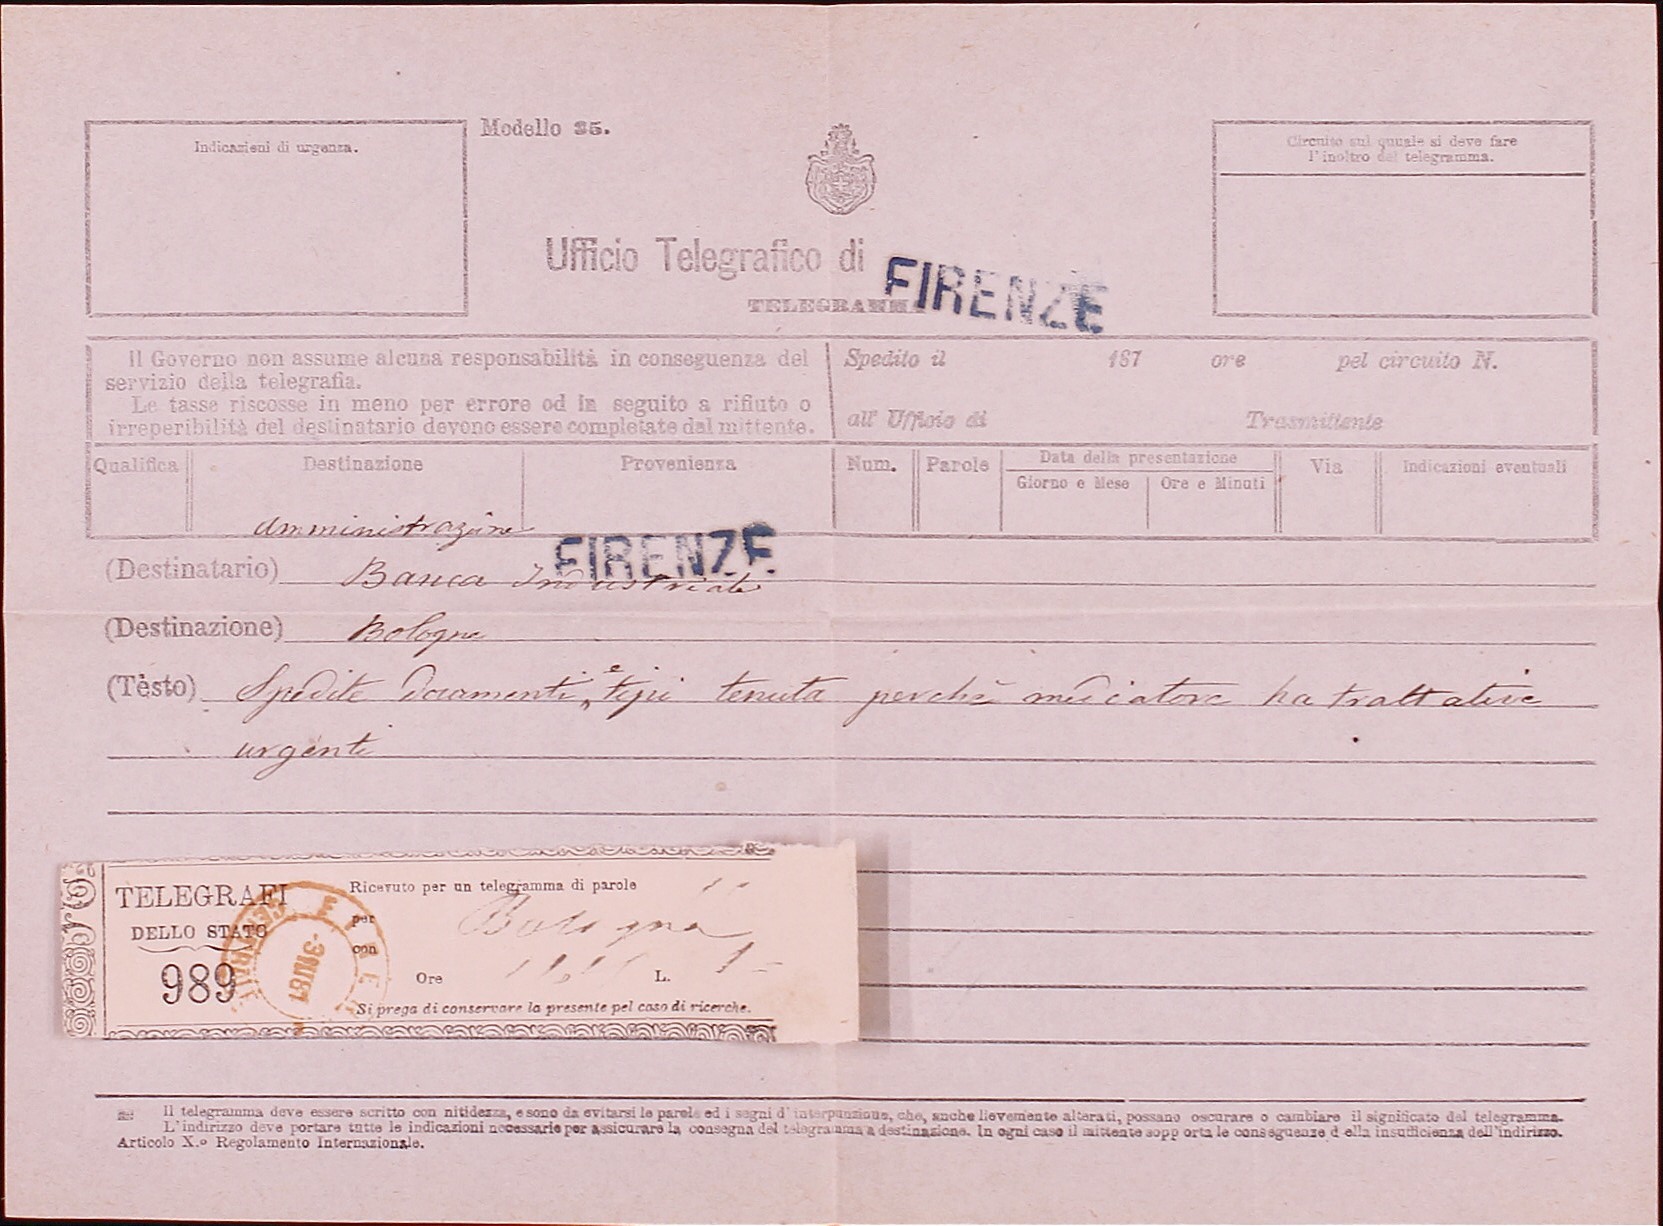 Indicazieni di urgenza.
Modello 25.
Circuito sul quuale si deve fare
l'inoltro del telegramma.
Ufficio Telegrafico di FIRENZE
TELEGRAMMA
Il Governo non assume alcuna responsabilità in conseguenza del
servizio della telegrafia.
Le tasse riscosse in meno per errore od in seguito a rifiuto o
irreperibilità del destinatario devono essere completate dal mittente.
Spedito il 187 ore pel circuito N.
all' Ufficio di Trasmittente
Qualifica Destinazione Provenienza Num. Parole Data della presentazione Via Indicazioni eventuali
Giorno e Mese Ore e Minuti
Amministrazione
FIRENZE
(Destinatario) Banca Industriale
(Destinazione) Bologna
(Testo) Spedite documenti e tipi tenuta perchè mediatore ha trattative
urgenti
TELEGRAFI
DELLO STATO
989
Ricevuto per un telegramma di parole
per Bologna
con
Ore L. 1
Si prega di conservare la presente pel caso di ricerche.
Il telegramma deve essere scritto con nitidezza, e sono da evitarsi le parole ed i segni d'interpunzione, che, anche lievemente alterati, possano oscurare o cambiare il significato del telegramma.
L'indirizzo deve portare tutte le indicazioni necessarie per assicurare la consegna del telegramma a destinazione. In ogni caso il mittente sopp orta le conseguenze d ella insufficienza dell'indirizzo.
Articolo X.º Regolamento Internazionale.